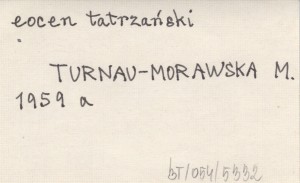 eocen tatrzański
TURNAU-MORAWSKA M.
1959 a
bT/054/5532